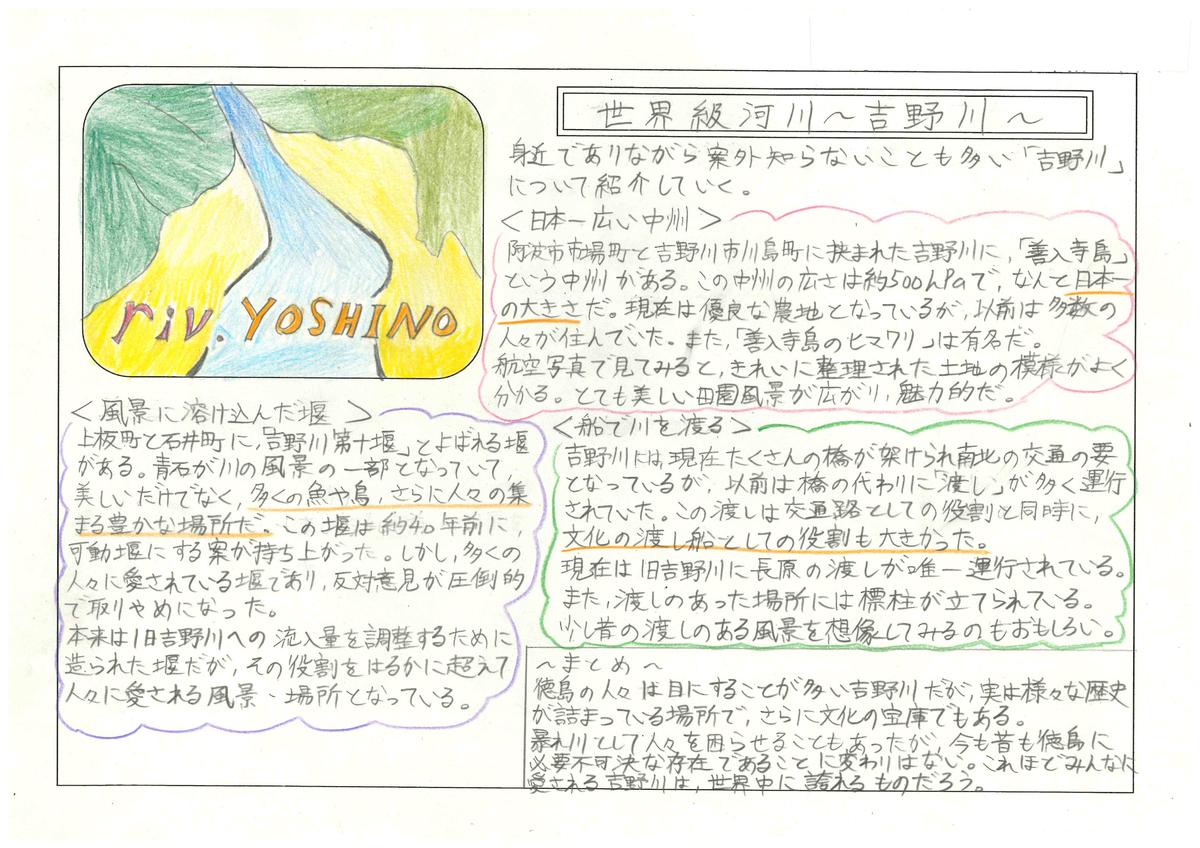 世界級河川～吉野川～
riv. YOSHINO
身近でありながら案外知らないことも多い「吉野川」
について紹介していく。
＜日本一広い中州＞
阿波市市場町と吉野川市川島町に挟まれた吉野川に,「善入寺島」
という中州がある。この中州の広さは約500hPaで, なんと日本一
の大きさだ。現在は優良な農地となっているが, 以前は多数の
人々が住んでいた。また,「善入寺島のヒマワリ」は有名だ。
航空写真で見てみると, きれいに整理された土地の模様がよく
分かる。とても美しい田園風景が広がり, 魅力的だ。
＜風景に溶け込んだ堰＞
上板町と石井町に,「吉野川第十堰」とよばれる堰
がある。青石が川の風景の一部となっていて,
美しいだけでなく, 多くの魚や鳥, さらに人々の集
まる豊かな場所だ。この堰は約40年前に,
可動堰にする案が持ち上がった。しかし, 多くの
人々に愛されている堰であり, 反対意見が圧倒的
で取りやめになった。
本来は旧吉野川への流入量を調整するために
造られた堰だが, その役割をはるかに超えて
人々に愛される風景・場所となっている。
＜船で川を渡る＞
吉野川には, 現在たくさんの橋が架けられ南北の交通の要
となっているが, 以前は橋の代わりに「渡し」が多く運行
されていた。この渡しは交通路としての役割と同時に,
文化の渡し船としての役割も大きかった。
現在は旧吉野川に長原の渡しが唯一運行されている。
また, 渡しのあった場所には標柱が立てられている。
少し昔の渡しのある風景を想像してみるのもおもしろい。
～まとめ～
徳島の人々は目にすることが多い吉野川だが, 実は様々な歴史
が詰まっている場所で, さらに文化の宝庫でもある。
暴れ川として人々を困らせることもあったが, 今も昔も徳島に
必要不可決な存在であることに変わりはない。これほどみんなに
愛される吉野川は, 世界中に誇れるものだろう。